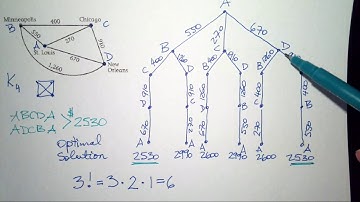 Minneapolis 400 Chicago
B C
550 270 910
A
St. Louis
D
670
New
Orleans
1,260
K4
ABCDA
ADCBA > $2530
optimal
solution
3! = 3·2·1 = 6
A
550 270 670
B C D
400 1260 400 910 1260
C D B D B C
910 910 1260 1260 400 400
D C D B C B
670 270 670 550 270 550
A A A A A A
2530 2990 2600 2990 2600 2530